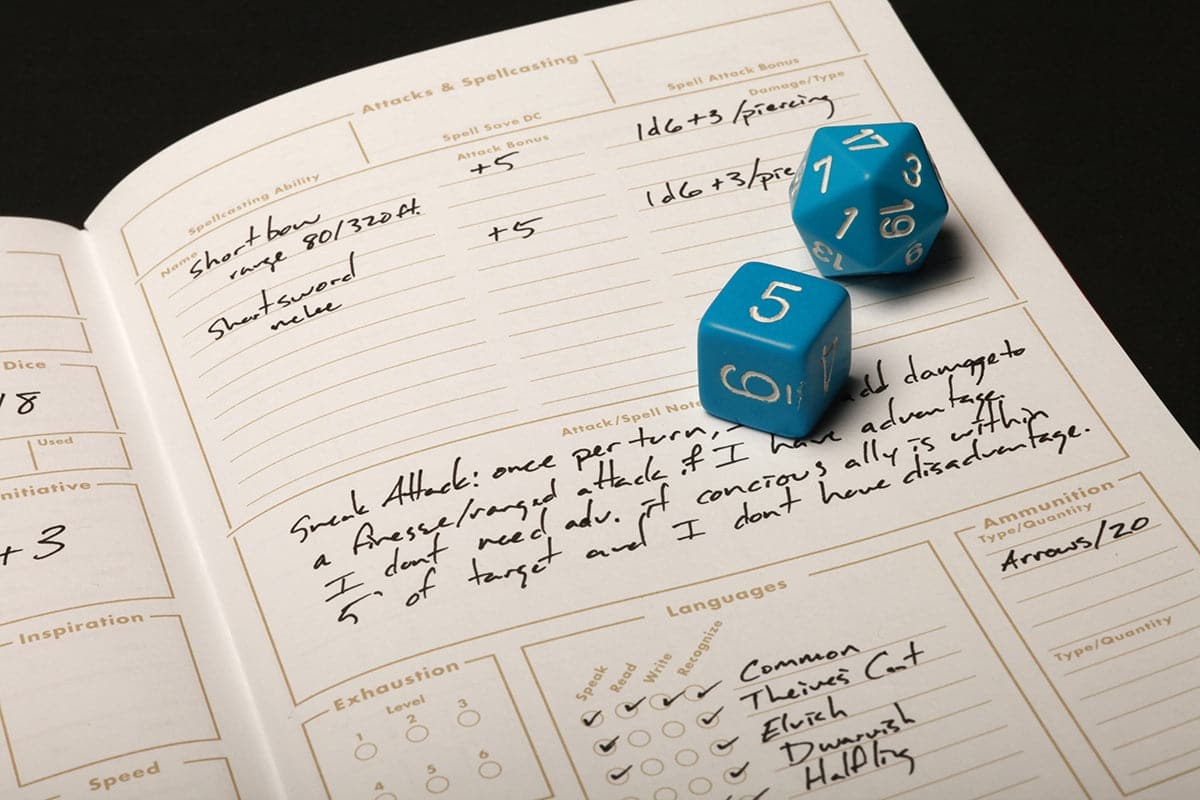 Attacks & Spellcasting
Spellcasting Ability
Spell Save DC
Spell Attack Bonus
Name
Attack Bonus
Damage/Type
Shortbow
range 80/320 ft.
+5
1d6+3/piercing
Shortsword
melee
+5
1d6+3/pie
17
7
3
1
19
13
9
5
6
4
Attack/Spell Note
Sneak Attack: once per turn, add damage to
a finesse/ranged attack if I have advantage.
I dont need adv. if concious ally is within
5' of target and I dont have disadvantage.
Dice
8
Used
nitiative
+3
Inspiration
Speed
Exhaustion
Level
1
2
3
4
5
6
Languages
Speak
Read
Write
Recognize
Common
Theives Cant
Elvish
Dwarvish
Halfling
Ammunition
Type/Quantity
Arrows/20
Type/Quantity